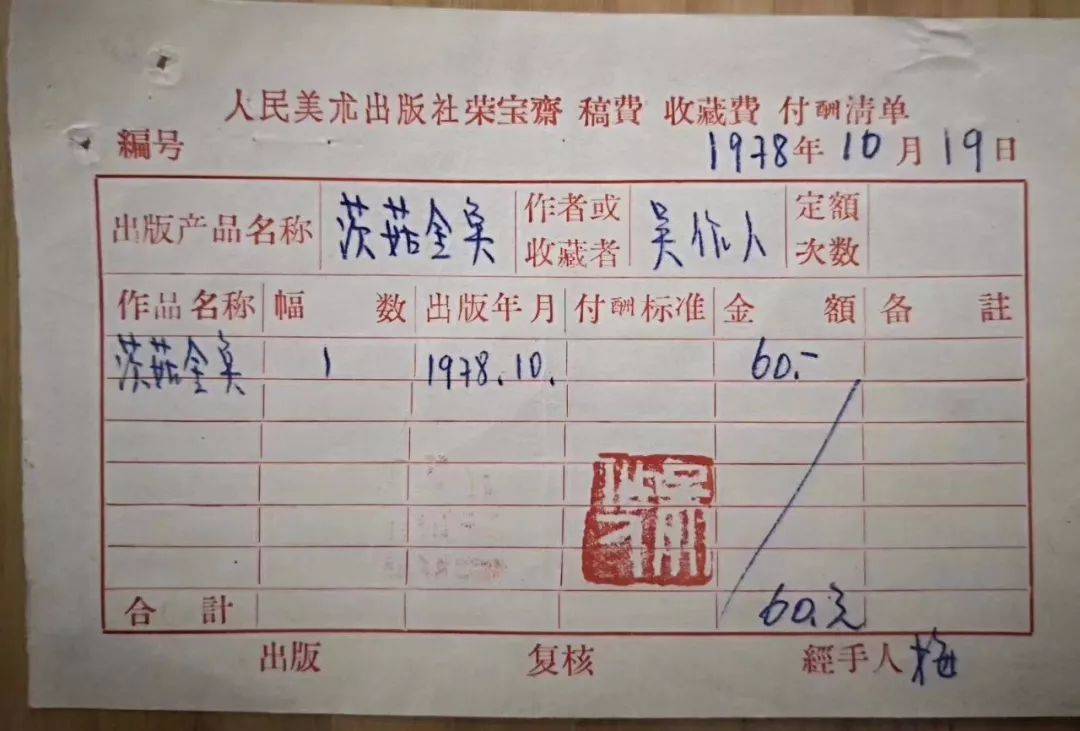 人民美朮出版社荣宝齋 稿費 收藏費 付酬清单
編号 1978年10月19日
出版产品名称 茨菇金鱼 作者或收藏者 吴作人 定額次数
作品名称 幅数 出版年月 付酬标准 金額 备註
茨菇金鱼 1 1978.10. 60.-
合計 60.元
出版 复核 經手人 梅